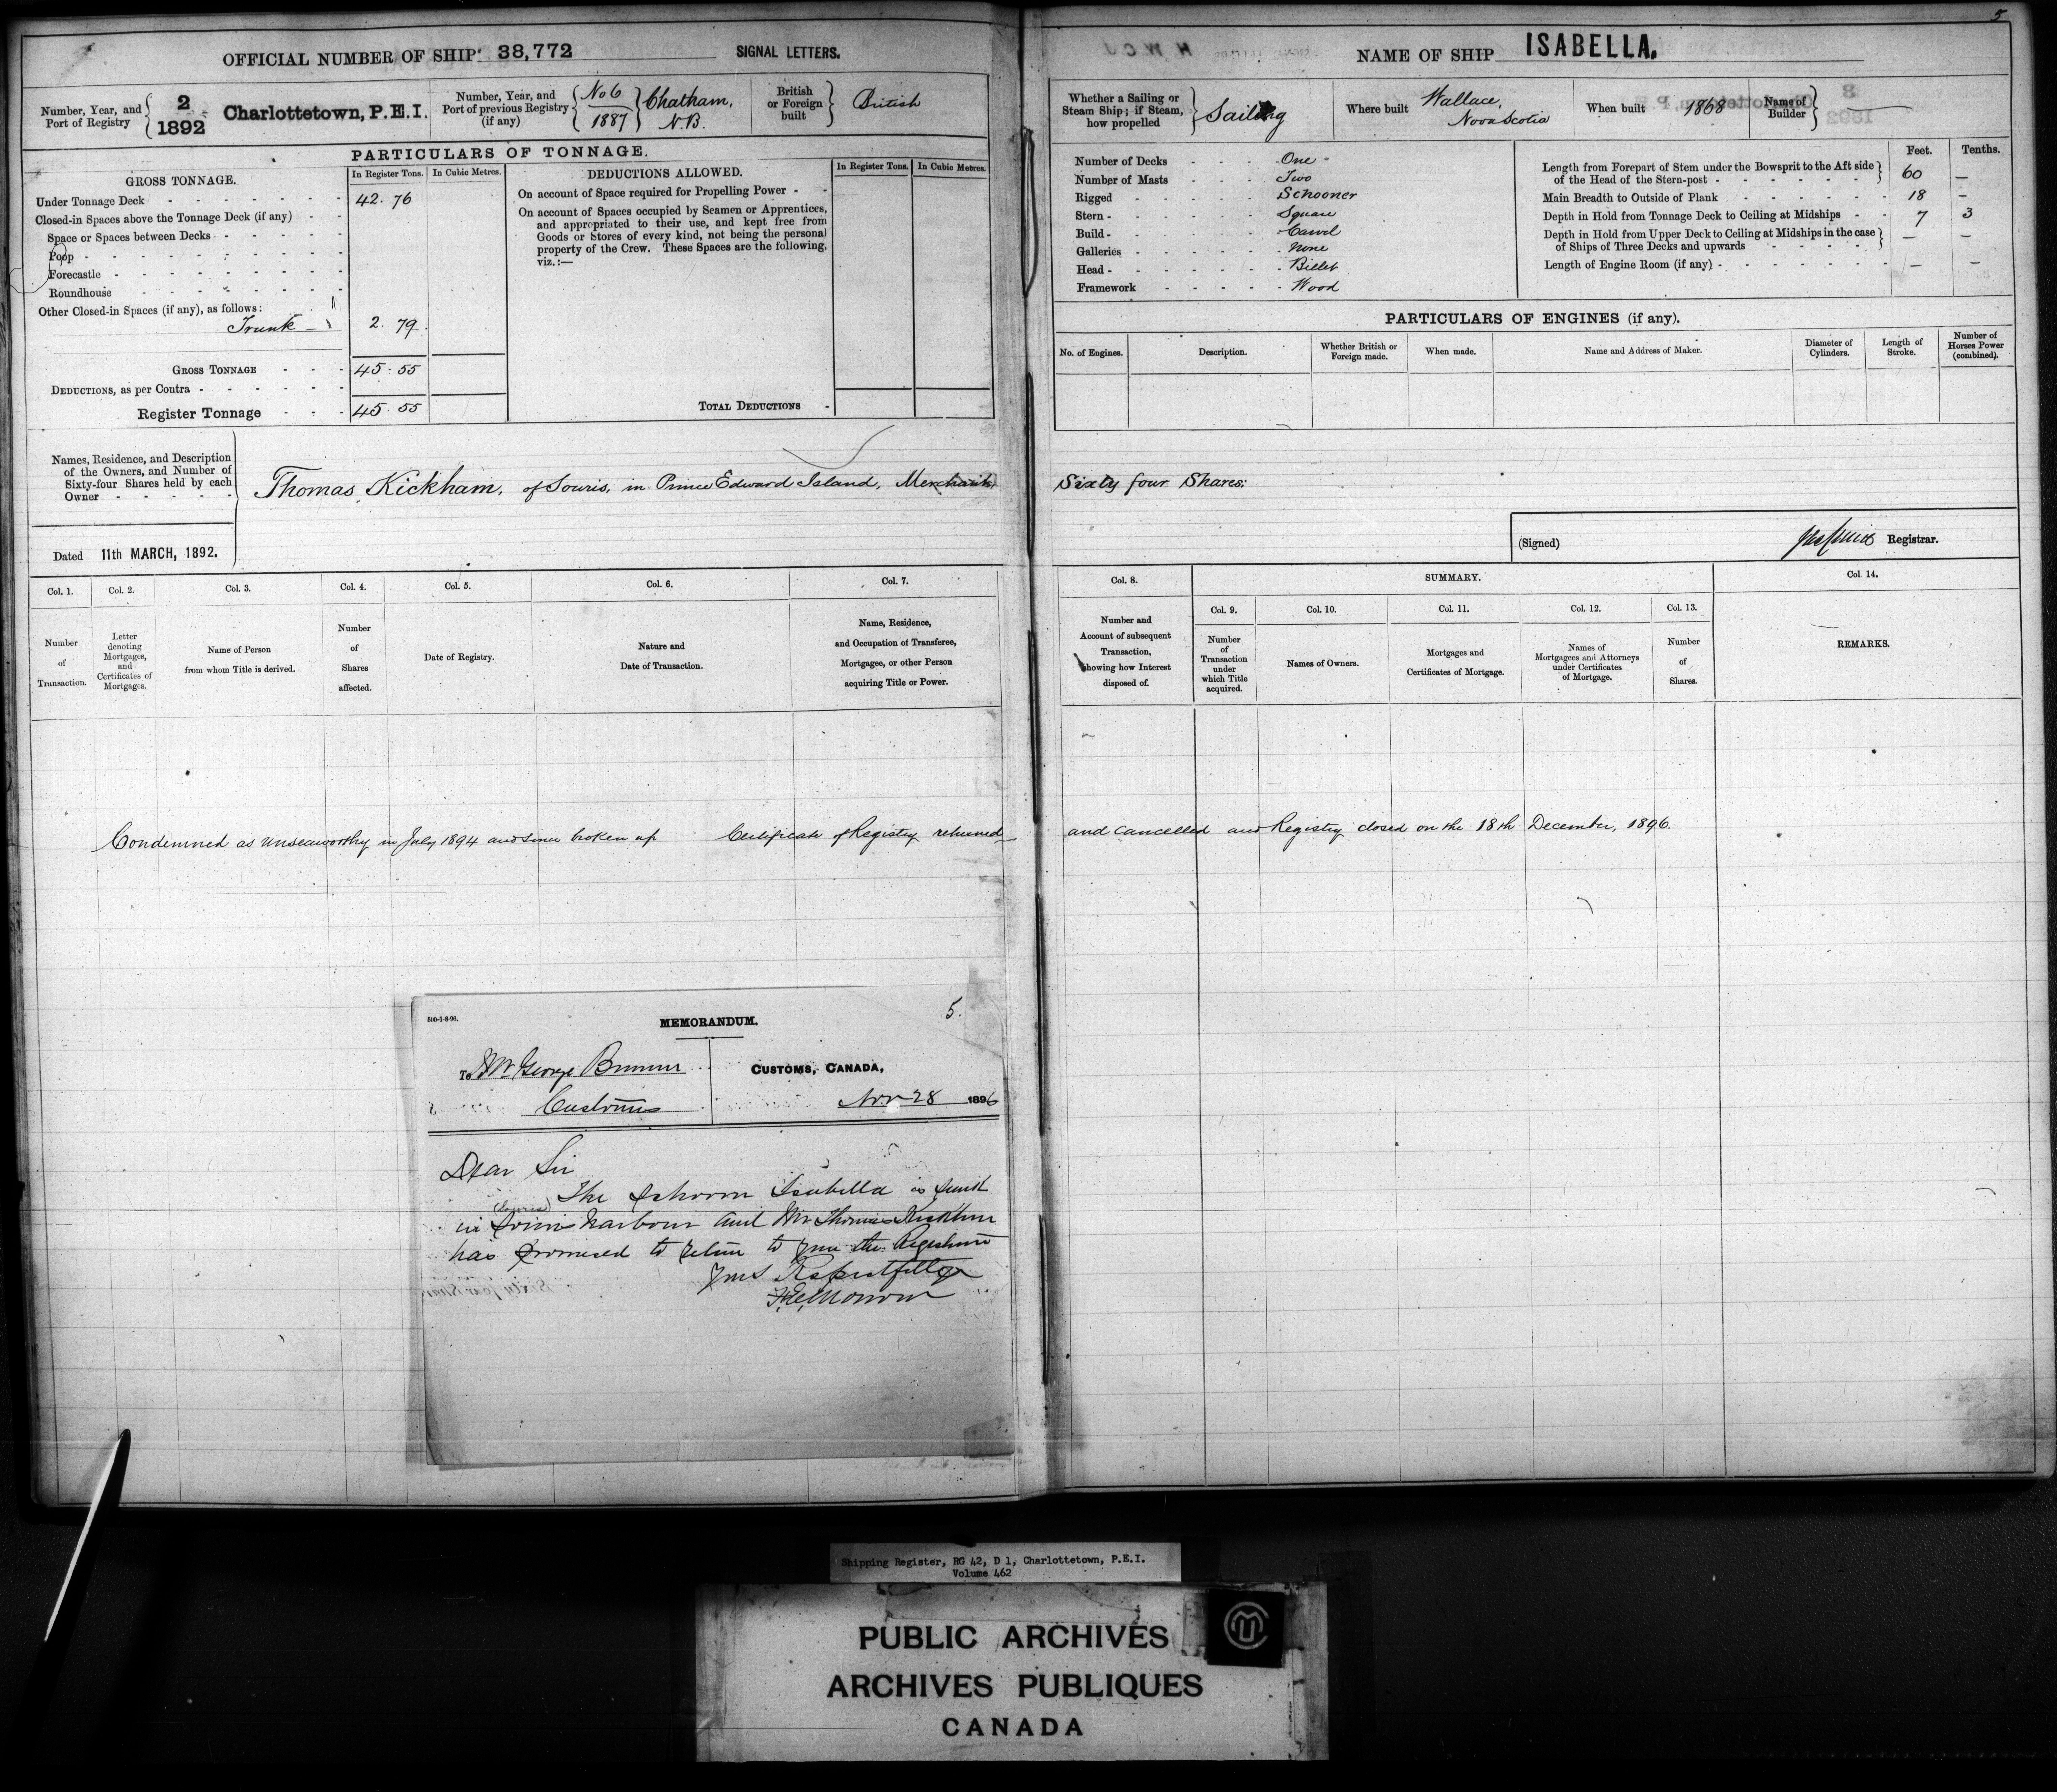 5
OFFICIAL NUMBER OF SHIP 38,772 SIGNAL LETTERS.
Number, Year, and Port of Registry 2 1892 Charlottetown, P.E.I.
Number, Year, and Port of previous Registry (if any) No 6 1887 Chatham, N.B.
British or Foreign built British
PARTICULARS OF TONNAGE.
GROSS TONNAGE. In Register Tons. In Cubic Metres.
Under Tonnage Deck 42.76
Closed-in Spaces above the Tonnage Deck (if any)
Space or Spaces between Decks
Poop
Forecastle
Roundhouse
Other Closed-in Spaces (if any), as follows:
Trunk 2.79
GROSS TONNAGE 45.55
DEDUCTIONS, as per Contra
Register Tonnage 45.55
DEDUCTIONS ALLOWED. In Register Tons. In Cubic Metres.
On account of Space required for Propelling Power
On account of Spaces occupied by Seamen or Apprentices,
and appropriated to their use, and kept free from
Goods or Stores of every kind, not being the personal
property of the Crew. These Spaces are the following,
viz.:—
TOTAL DEDUCTIONS
Names, Residence, and Description
of the Owners, and Number of
Sixty-four Shares held by each
Owner
Thomas Kickham, of Souris, in Prince Edward Island, Merchant
Dated 11th MARCH, 1892.
Col. 1. Col. 2. Col. 3. Col. 4. Col. 5. Col. 6. Col. 7.
Number of Transaction.
Letter denoting Mortgages, and Certificates of Mortgages.
Name of Person from whom Title is derived.
Number of Shares affected.
Date of Registry.
Nature and Date of Transaction.
Name, Residence, and Occupation of Transferee, Mortgagee, or other Person acquiring Title or Power.
Condemned as unseaworthy in July 1894 and since broken up Certificate of Registry returned
500-1-8-96.
MEMORANDUM. 5.
To Mr George
Customs
CUSTOMS, CANADA,
Nov 28 1896
Dear Sir
The Schooner Isabella is sunk
(Souris)
in Souris Harbour and Mr Thomas Kickham
has promised to return to you the
Yours Respectfully
NAME OF SHIP ISABELLA.
Whether a Sailing or Steam Ship; if Steam, how propelled Sailing
Where built Wallace, Nova Scotia
When built 1868
Name of Builder —
Number of Decks One
Number of Masts Two
Rigged Schooner
Stern Square
Build Carvel
Galleries None
Head Billet
Framework Wood
Feet. Tenths.
Length from Forepart of Stem under the Bowsprit to the Aft side
of the Head of the Stern-post 60 —
Main Breadth to Outside of Plank 18 —
Depth in Hold from Tonnage Deck to Ceiling at Midships 7 3
Depth in Hold from Upper Deck to Ceiling at Midships in the case
of Ships of Three Decks and upwards — —
Length of Engine Room (if any) — —
PARTICULARS OF ENGINES (if any).
No. of Engines. Description. Whether British or Foreign made. When made. Name and Address of Maker. Diameter of Cylinders. Length of Stroke. Number of Horses Power (combined).
Sixty four Shares:
(Signed) Registrar.
Col. 8. SUMMARY. Col. 14.
Col. 9. Col. 10. Col. 11. Col. 12. Col. 13.
Number and Account of subsequent Transaction, showing how Interest disposed of.
Number of Transaction under which Title acquired.
Names of Owners.
Mortgages and Certificates of Mortgage.
Names of Mortgagees and Attorneys under Certificates of Mortgage.
Number of Shares.
REMARKS.
and cancelled and Registry closed on the 18th December, 1896.
Shipping Register, RG 42, D 1, Charlottetown, P.E.I.
Volume 462
PUBLIC ARCHIVES
ARCHIVES PUBLIQUES
CANADA